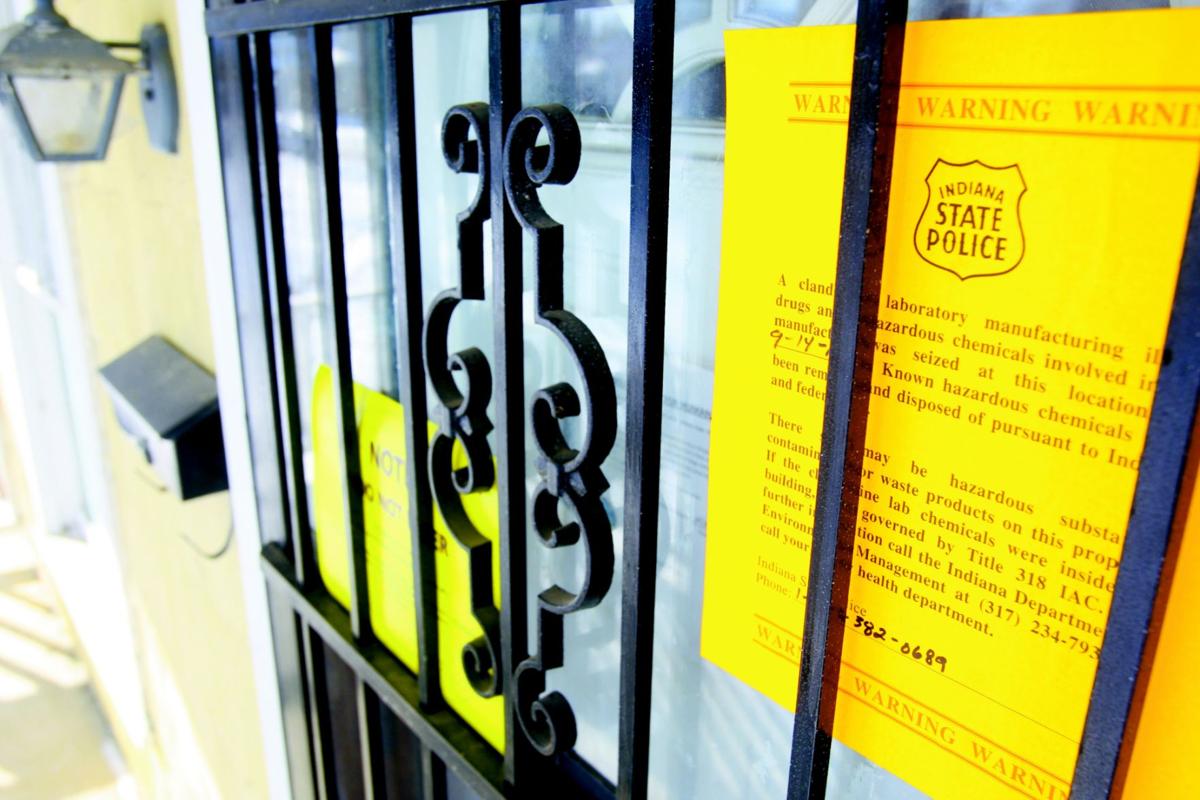 NOT
NOT
ER
WARN WARNING WARNI
INDIANA
STATE
POLICE
A cland laboratory manufacturing il
drugs an azardous chemicals involved in
manufact was seized at this location
9-14-
been rem Known hazardous chemicals
and feder and disposed of pursuant to Ind
There may be hazardous substa
contamin or waste products on this prop
If the ine lab chemicals were inside
building, governed by Title 318 IAC.
further i tion call the Indiana Departme
Environm Management at (317) 234-793
call your health department.
Indiana S ice
Phone: 1- 382-0689
WARN WARNING WARNIN